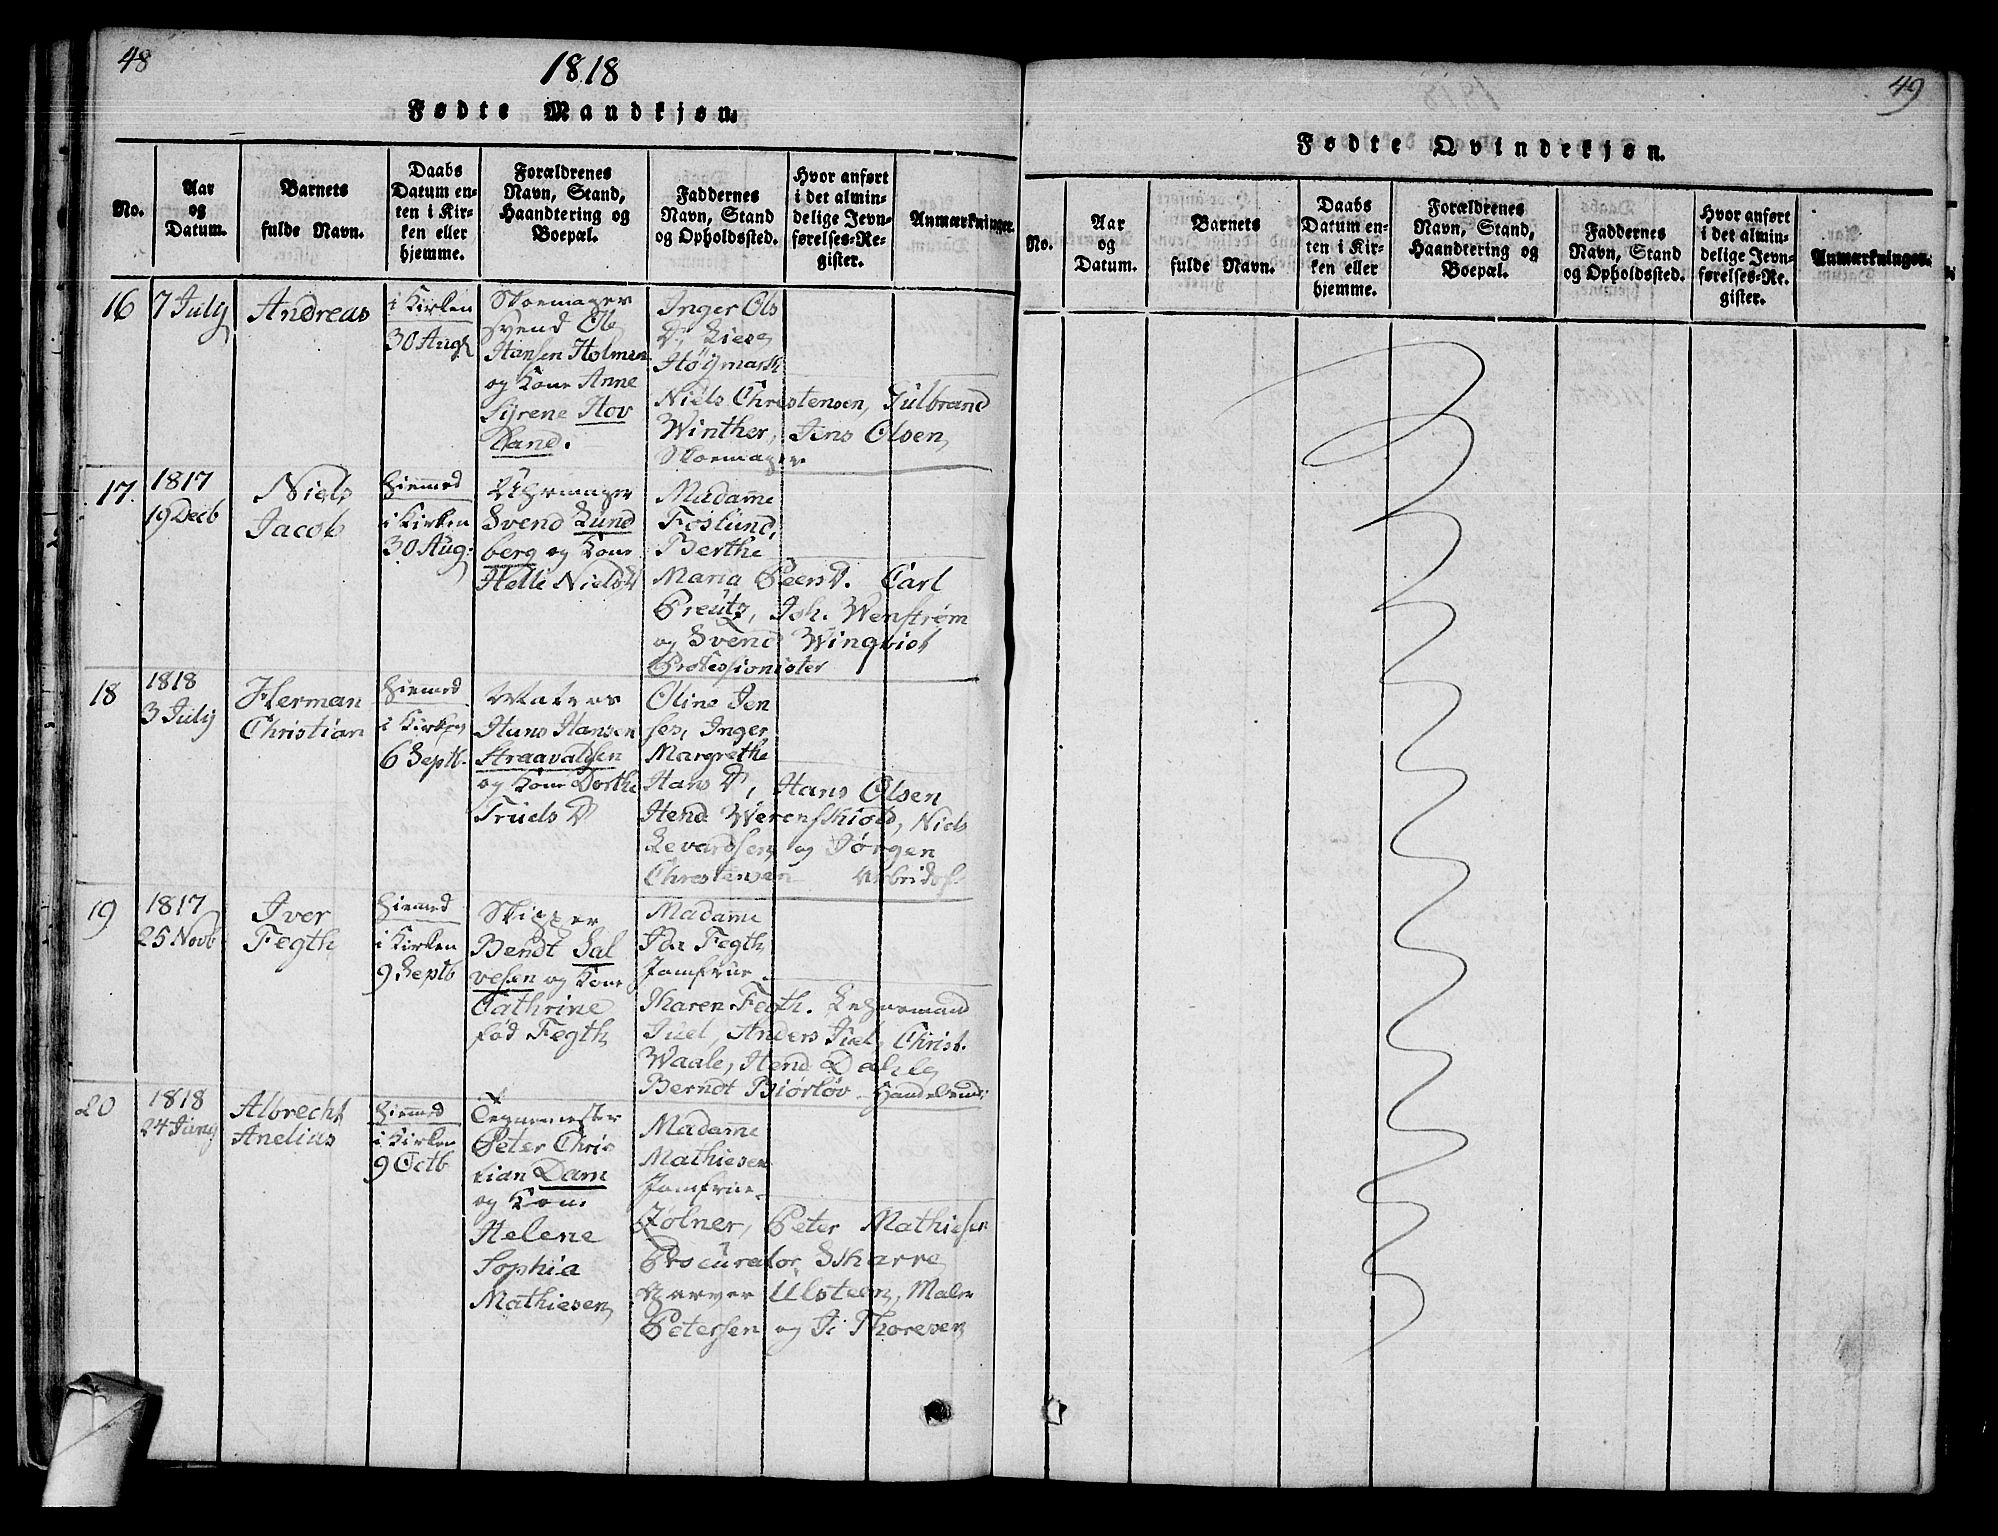 48
1818
Fødte Mandkjøn.
No.
Aar
og
Datum.
Barnets
fulde Navn.
Daabs
Datum en-
ten i Kir-
ken eller
hjemme.
Forældrenes
Navn, Stand,
Haandtering og
Boepæl.
Faddernes
Navn, Stand
og Opholdssted.
Hvor anført
i det almin-
delige Jevn-
førelses-Re-
gister.
Anmærkninger.
16
7 July
Andreas
i Kirken
30 Aug
Skoemager
svend Ole
Hansen Holmen
og Kone Anne
Syrene Hov
land.
Inger Ols
D, Liese
Höÿmark
Niels Christensen, Gulbrand
Winther, Jens Olsen,
Skoemager
17.
1817
19 Decb
Niels
Jacob
Hiemed
i Kirken
30 Aug:
Uhrmager
Svend Lund
berg og Kone
Helle Niels D
Madame
Foslund,
Berthe
Maria Peers D. Carl
Preutz, Joh. Wenstrøm
og Svend Winqvist
Professionister
18
1818
3 July
Herman
Christian
Hiemed
i Kirken
6 Septb.
Matros
Hans Hansen
Straavaldsen
og Kone Dorthe
Truels D
Oline Jen
sen, Inger
Margrethe
Hans D, Hans Olsen
Hend Werenskiold, Niels
Levardsen og Jørgen
Christensen Arbeidsf.
19
1817
25 Novb
Iver
Fegth
Hiemed
i Kirken
9 Septb
Skipper
Bendt Sal
vesen og Kone
Cathrine
fød Fegth
Madame
Ida Fegth
Jomfrue
Maren Fegth.
Juel, Anders Juel, Christ.
Waale, Hend Dahle
Berndt Biørløv - Handelsmd:
20
1818
24 Juny
Albrecht
Anelius
Hiemed
i Kirken
9 Octb
Tegnemester
Peter Chris
tian Dam
og Kone
Helene
Sophia
Mathiesen
Madame
Mathiesen
Jomfrue
Zølner, Peter Mathiesen
Procurator Skarre
Garver Ulsteen, Maler
Petersen og J: Thoresen
49
Fødte Qvindekjøn.
No.
Aar
og
Datum.
Barnets
fulde Navn.
Daabs
Datum en-
ten i Kir-
ken eller
hjemme.
Forældrenes
Navn, Stand,
Haandtering og
Boepæl.
Faddernes
Navn, Stand
og Opholdssted.
Hvor anført
i det almin-
delige Jevn-
førelses-Re-
gister.
Anmærkninger.